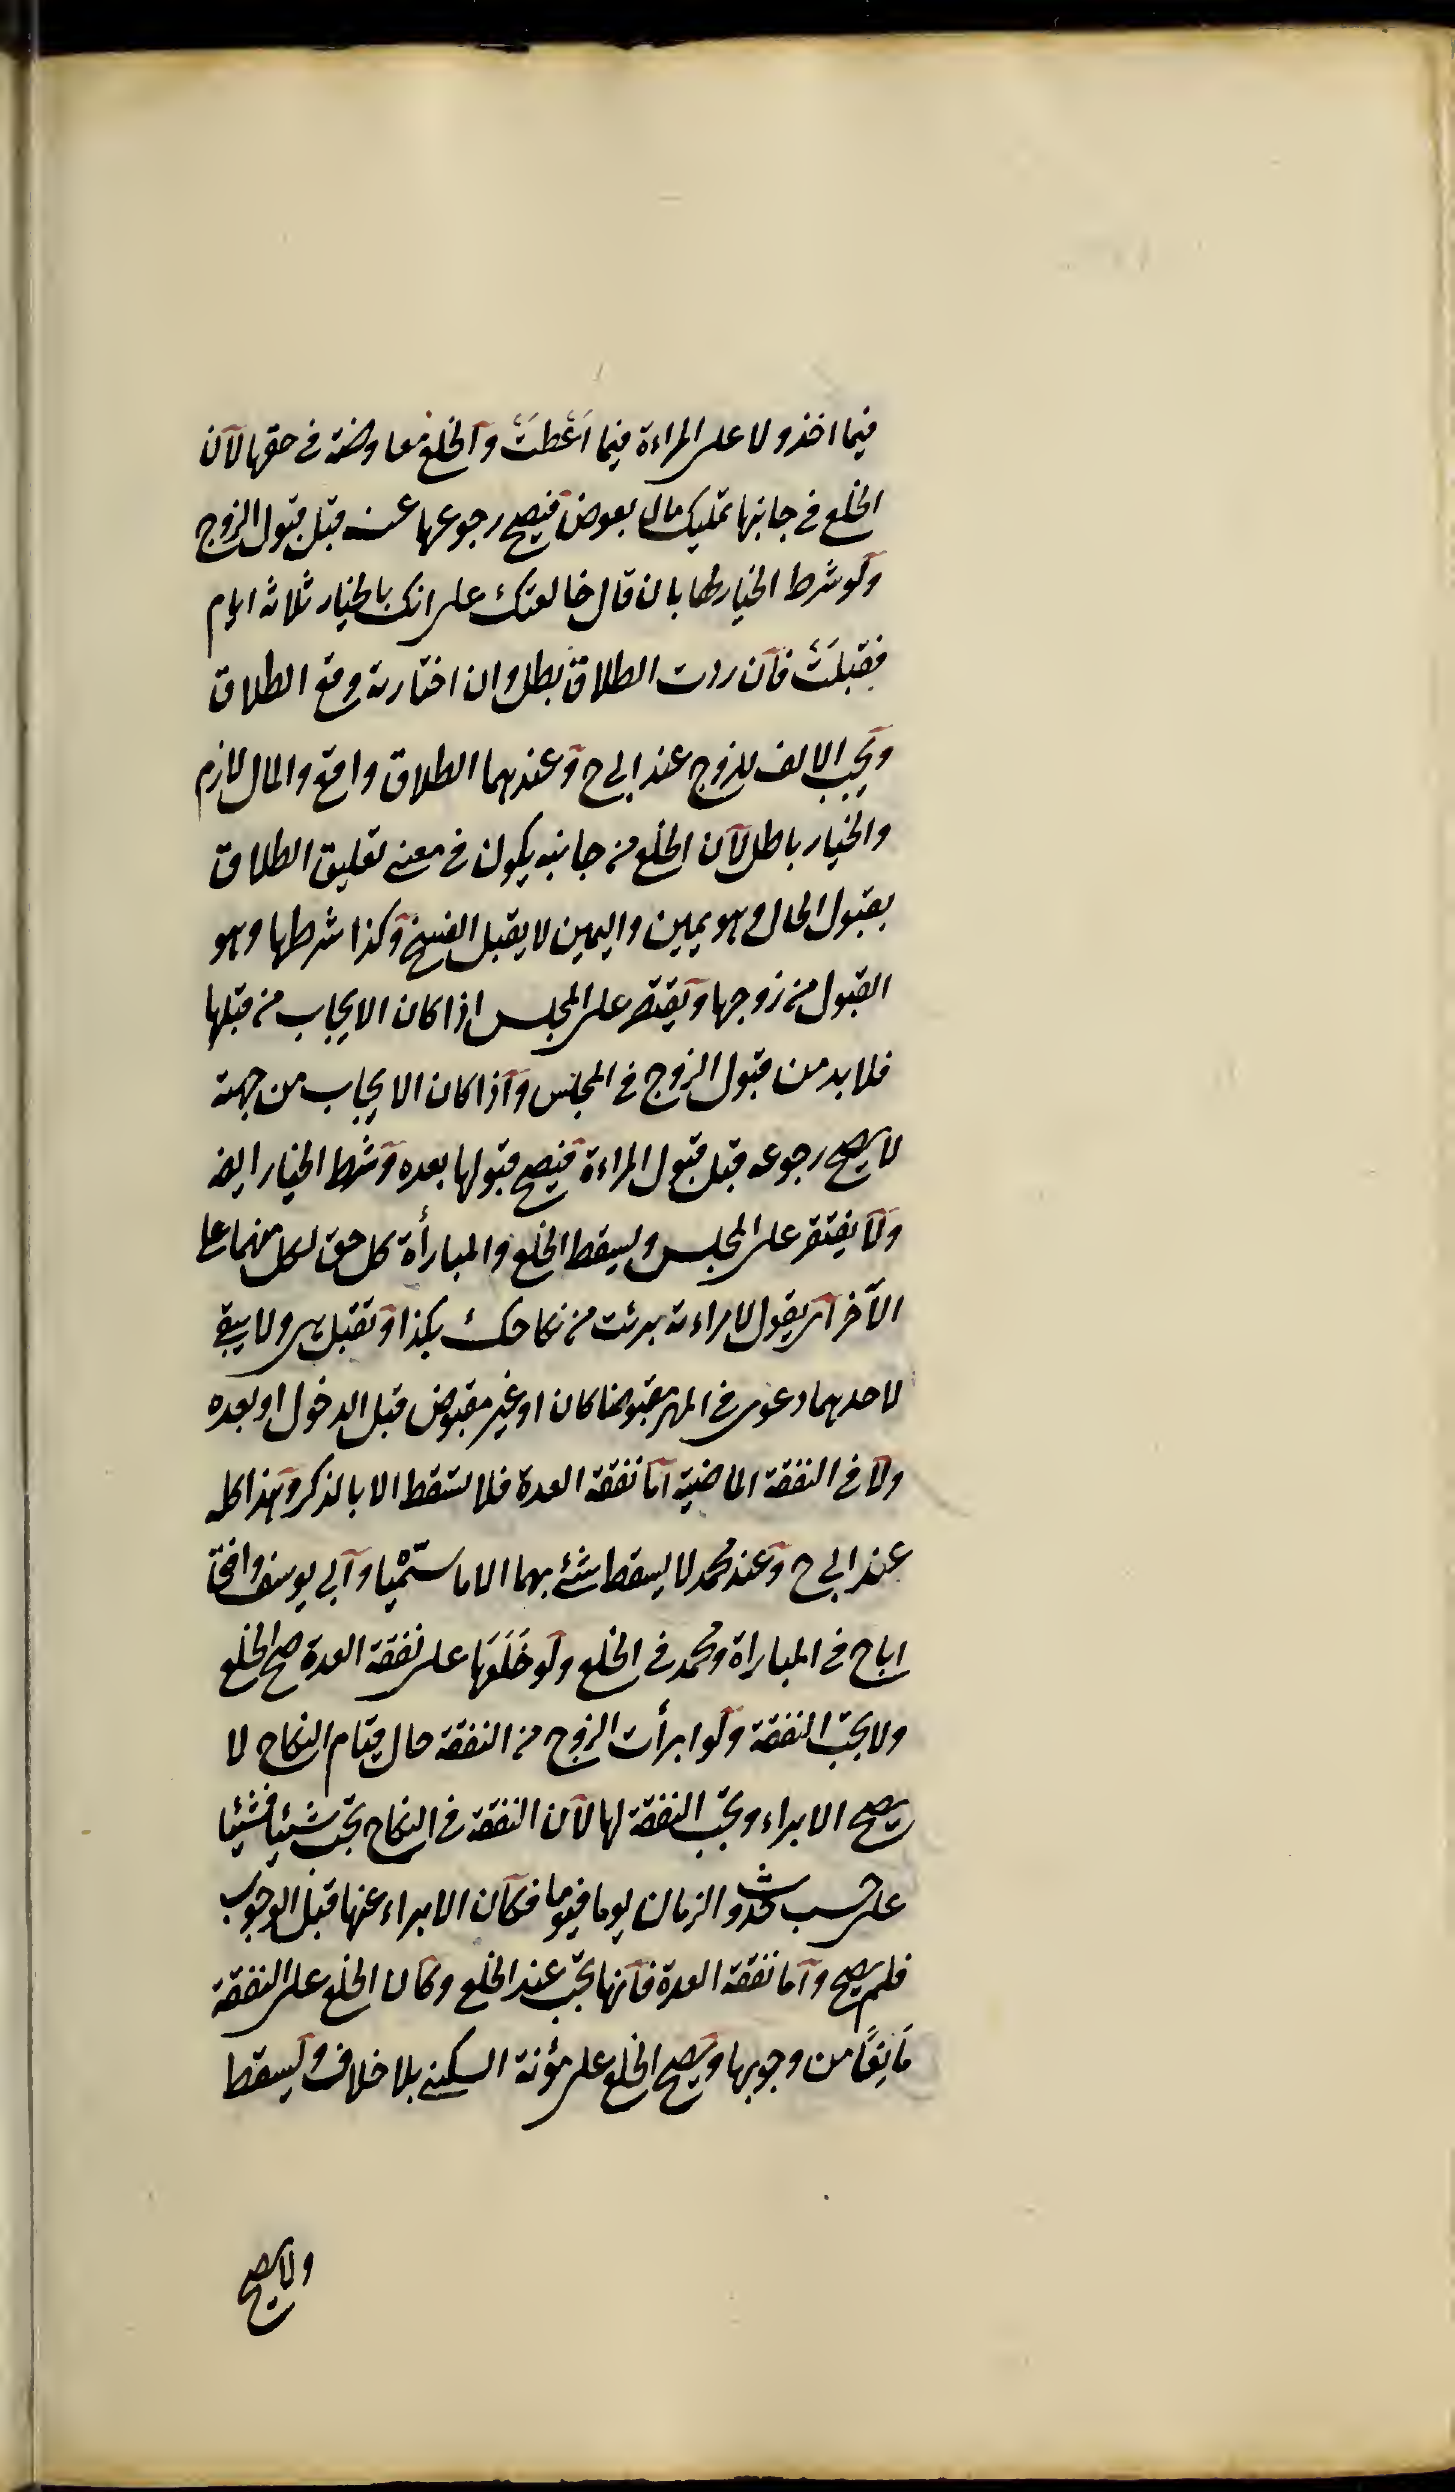 فيما اخذ ولا على المراءة فيما اَعْطَتْ والخلع معاوضة في حقها لان
الخلع في جانبها تمليك مال بعوض فيصح رجوعها عنه قبل قبول الزوج
ولو شرط الخيار لها بان قال خالعتك على انك بالخيار ثلاثة ايام
فقبلَتْ فان ردت الطلاق بطل وان اختارته وقع الطلاق
ويجب الالف للزوج عند ابي ح وعندهما الطلاق واقع والمال لازم
والخيار باطل لان الخلع من جانبه يكون في معنى تعليق الطلاق
بقبول المال وهو يمين واليمين لا يقبل الفسخ وكذا شرطها وهو
القبول من زوجها ويقتصر على المجلس اذا كان الايجاب من قبلها
فلا بد من قبول الزوج في المجلس واذا كان الايجاب من جهته
لا يصح رجوعه قبل قبول المراءة فيصح قبولها بعده وشرط الخيار ايضا
ولا يقتصر على المجلس ويسقط الخلع والمبارأة كل حق لكل منهما على
الآخر اى يقول لامراءته برئت من نكاحك بكذا وتقبل هى ولا يبقى
لاحدهما دعوى في المهر مقبوضا كان او غير مقبوض قبل الدخول او بعده
ولا في النفقة الماضية اما نفقة العدة فلا تسقط الا بالذكر وهذا كله
عند ابي ح وعند محمد لا يسقط شئ بهما الا ما سمّياه وابي يوسف وافق
اباح في المباراة ومحمد في الخلع ولو خَلَعَها على نفقة العدة صح الخلع
ولا يجب النفقة ولو ابرأت الزوج من النفقة حال قيام النكاح لا
يصح الابراء ويجب النفقة لها لان النفقة في النكاح تجب شيئا فشيئا
على حسب حدوث الزمان يوما فيوما فكان الابراء عنها قبل الوجوب
فلم يصح واما نفقة العدة فانها تجب عند الخلع وكان الخلع على النفقة
مَانِعًا من وجوبها ويصح الخلع على مؤنة السكنى بلا خلاف ويسقط
ولا يصح